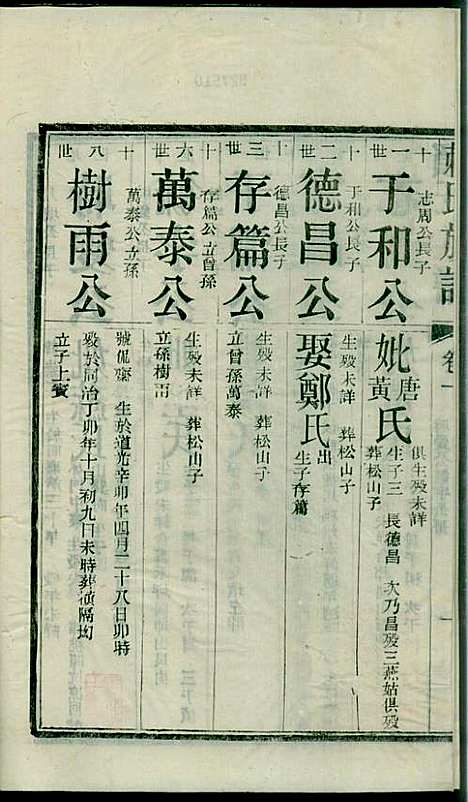 氏族譜
卷一
一
十一世
于和公
志周公長子
妣唐黃氏
俱生歿未詳
葬松山子
生子三 長德昌 次乃昌歿三燕姑俱歿
十二世
德昌公
于和公長子
生歿未詳 葬松山子
娶鄭氏
出
生子存篇
十三世
存篇公
德昌公長子
生歿未詳 葬松山子
立曾孫萬泰
十六世
萬泰公
存篇公立曾孫
生歿未詳 葬松山子
立孫樹雨
十八世
樹雨公
萬泰公立孫
號侃齋 生於道光辛卯年四月二十八日卯時
歿於同治丁卯年十月初九日未時葬橫隔㘭
立子上賓